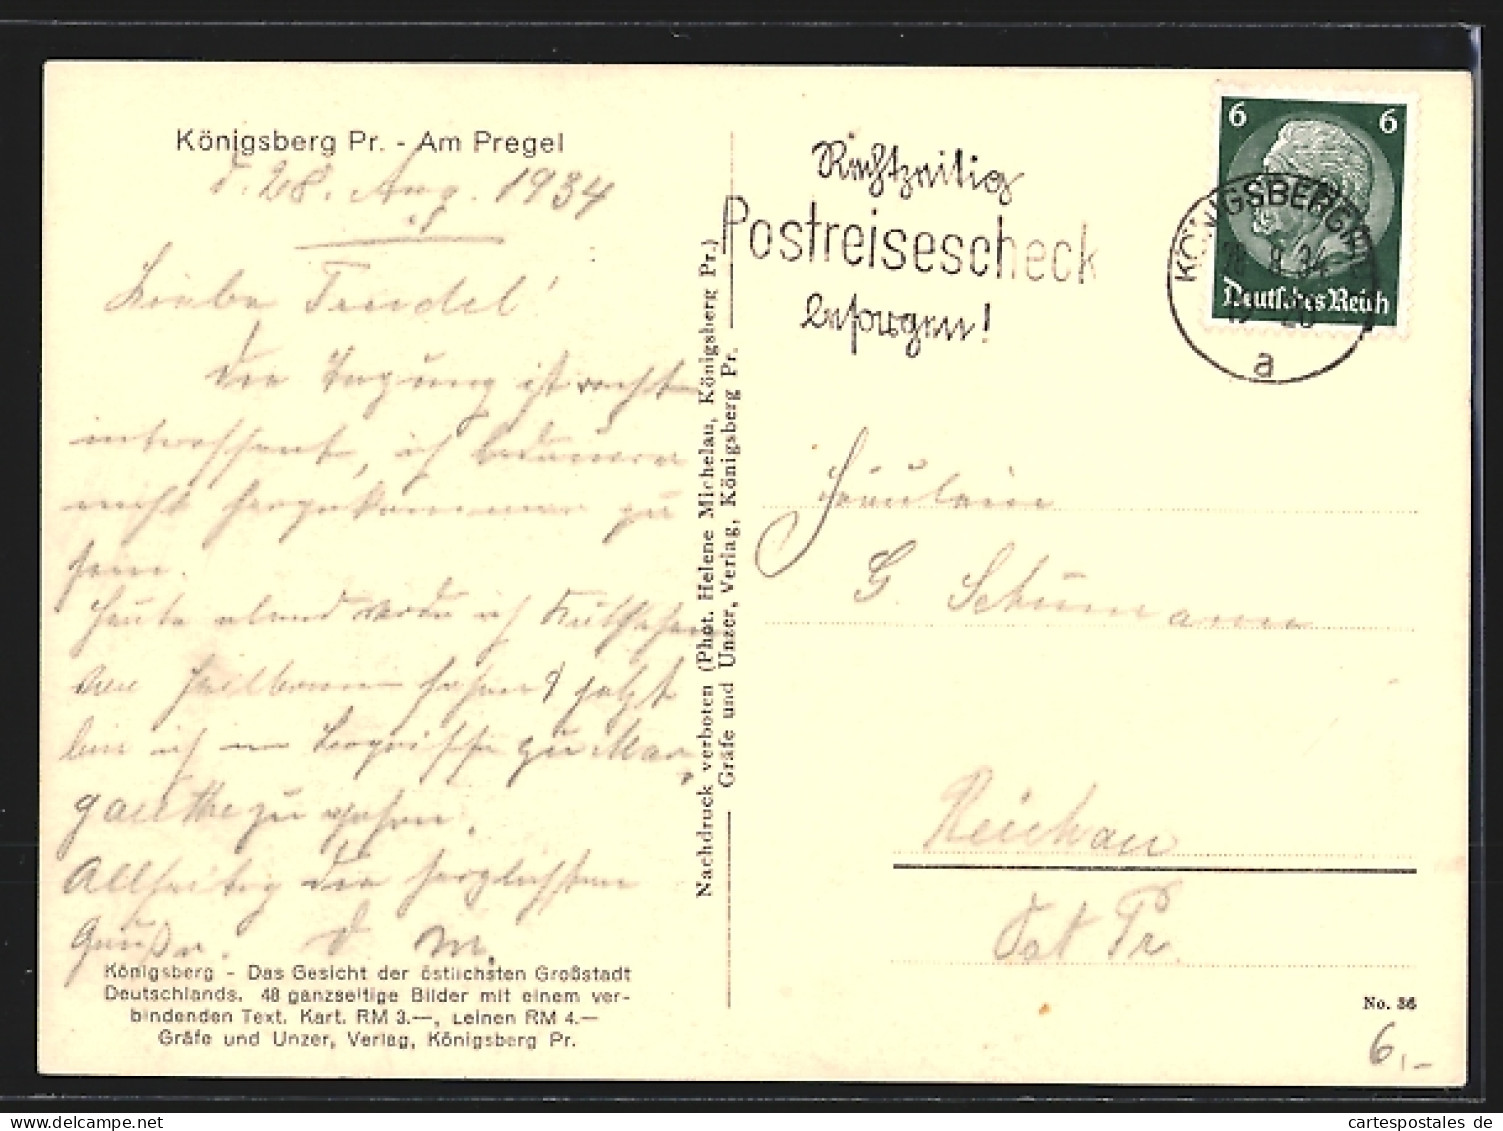 Königsberg Pr. - Am Pregel
d. 28. Aug. 1934
Liebe Trudel!
Die Tagung ist recht
interessant, ich bedauere
nicht hergekommen zu
sein.
Heute abend werde ich
Heilbronn jetzt
bin ich im Begriffe zu Mar
garethe zu gehen.
Allseitig die herzlichsten
Grüße. D. M.
Königsberg - Das Gesicht der östlichsten Großstadt
Deutschlands. 48 ganzseitige Bilder mit einem ver-
bindenden Text. Kart. RM 3.—, Leinen RM 4.—
Gräfe und Unzer, Verlag, Königsberg Pr.
Nachdruck verboten (Phot. Helene Michelau, Königsberg Pr.)
Gräfe und Unzer, Verlag, Königsberg Pr.
Rechtzeitig
Postreisescheck
besorgen!
6 6
Deutsches Reich
KÖNIGSBERG (PR)
28.8.34
a
Fräulein
G. Schumann
Reichau
Ost Pr.
No. 36
6,-
cartespostales.de